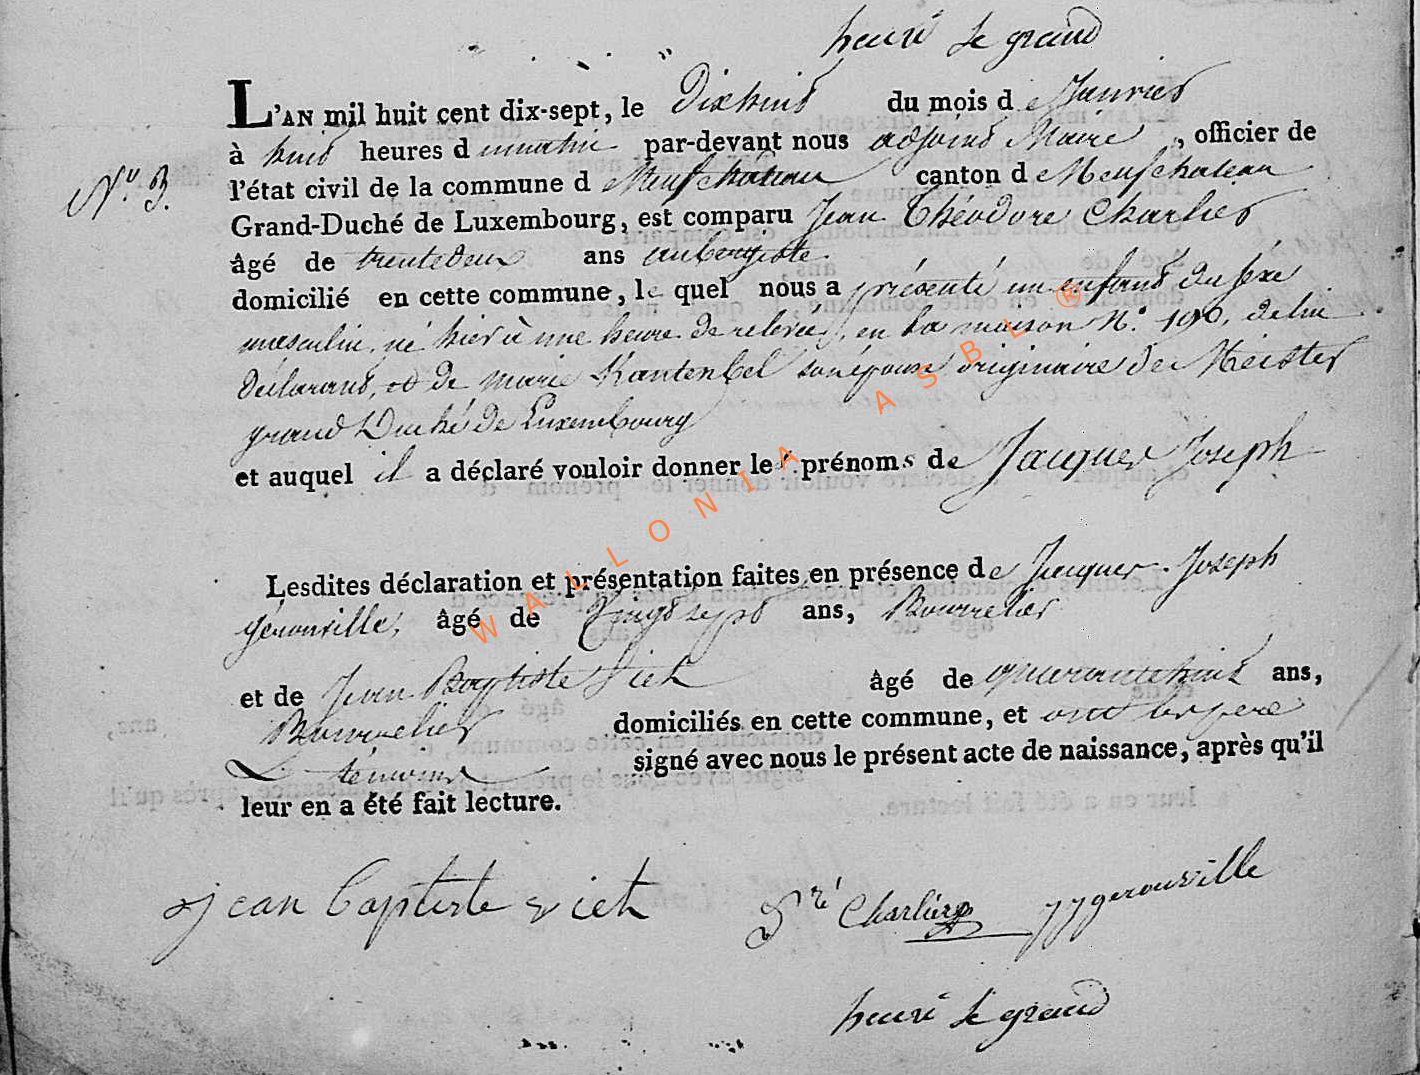 henri le grand
L'AN mil huit cent dix-sept, le Dixhuit du mois de Janvier
à huit heures du matin par-devant nous adjoint Maire, officier de
N° 3.
l'état civil de la commune de Neufchateau canton de Neufchateau
Grand-Duché de Luxembourg, est comparu Jean Théodore Charlier
âgé de trentedeux ans aubergiste
domicilié en cette commune, le quel nous a présenté un enfant du sexe
masculin, né hier à une heure de relevée, en la maison N° 190, de lui
déclarant, et de marie Kantenbel son épouse originaire de
grand Duché de Luxembourg
et auquel il a déclaré vouloir donner les prénoms de Jacques Joseph
Lesdites déclaration et présentation faites en présence de Jacques Joseph
gerouville, âgé de vingt sept ans, Bourrelier
et de Jean Baptiste âgé de quarantehuit ans,
Bourrelier domiciliés en cette commune, et ont le pere
et temoins signé avec nous le présent acte de naissance, après qu'il
leur en a été fait lecture.
jean baptiste Charlier JJgerouville
henri le grand
WALLONIA ASBL ®